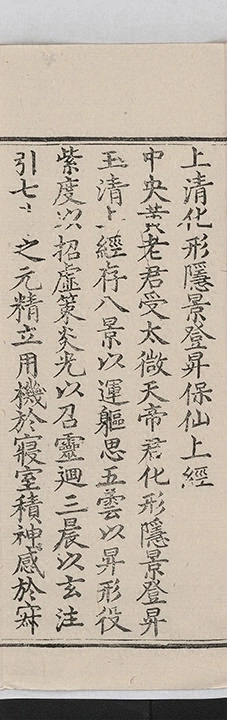 上清化形隱景登昇保仙上經
中央黃老君受太微天帝君化形隱景登昇
玉清上經存八景以運軀思五雲以昇形役
紫度以招虛策炎光以召靈迴三晨以玄注
引七之元精立用機於寢室積神感於寂